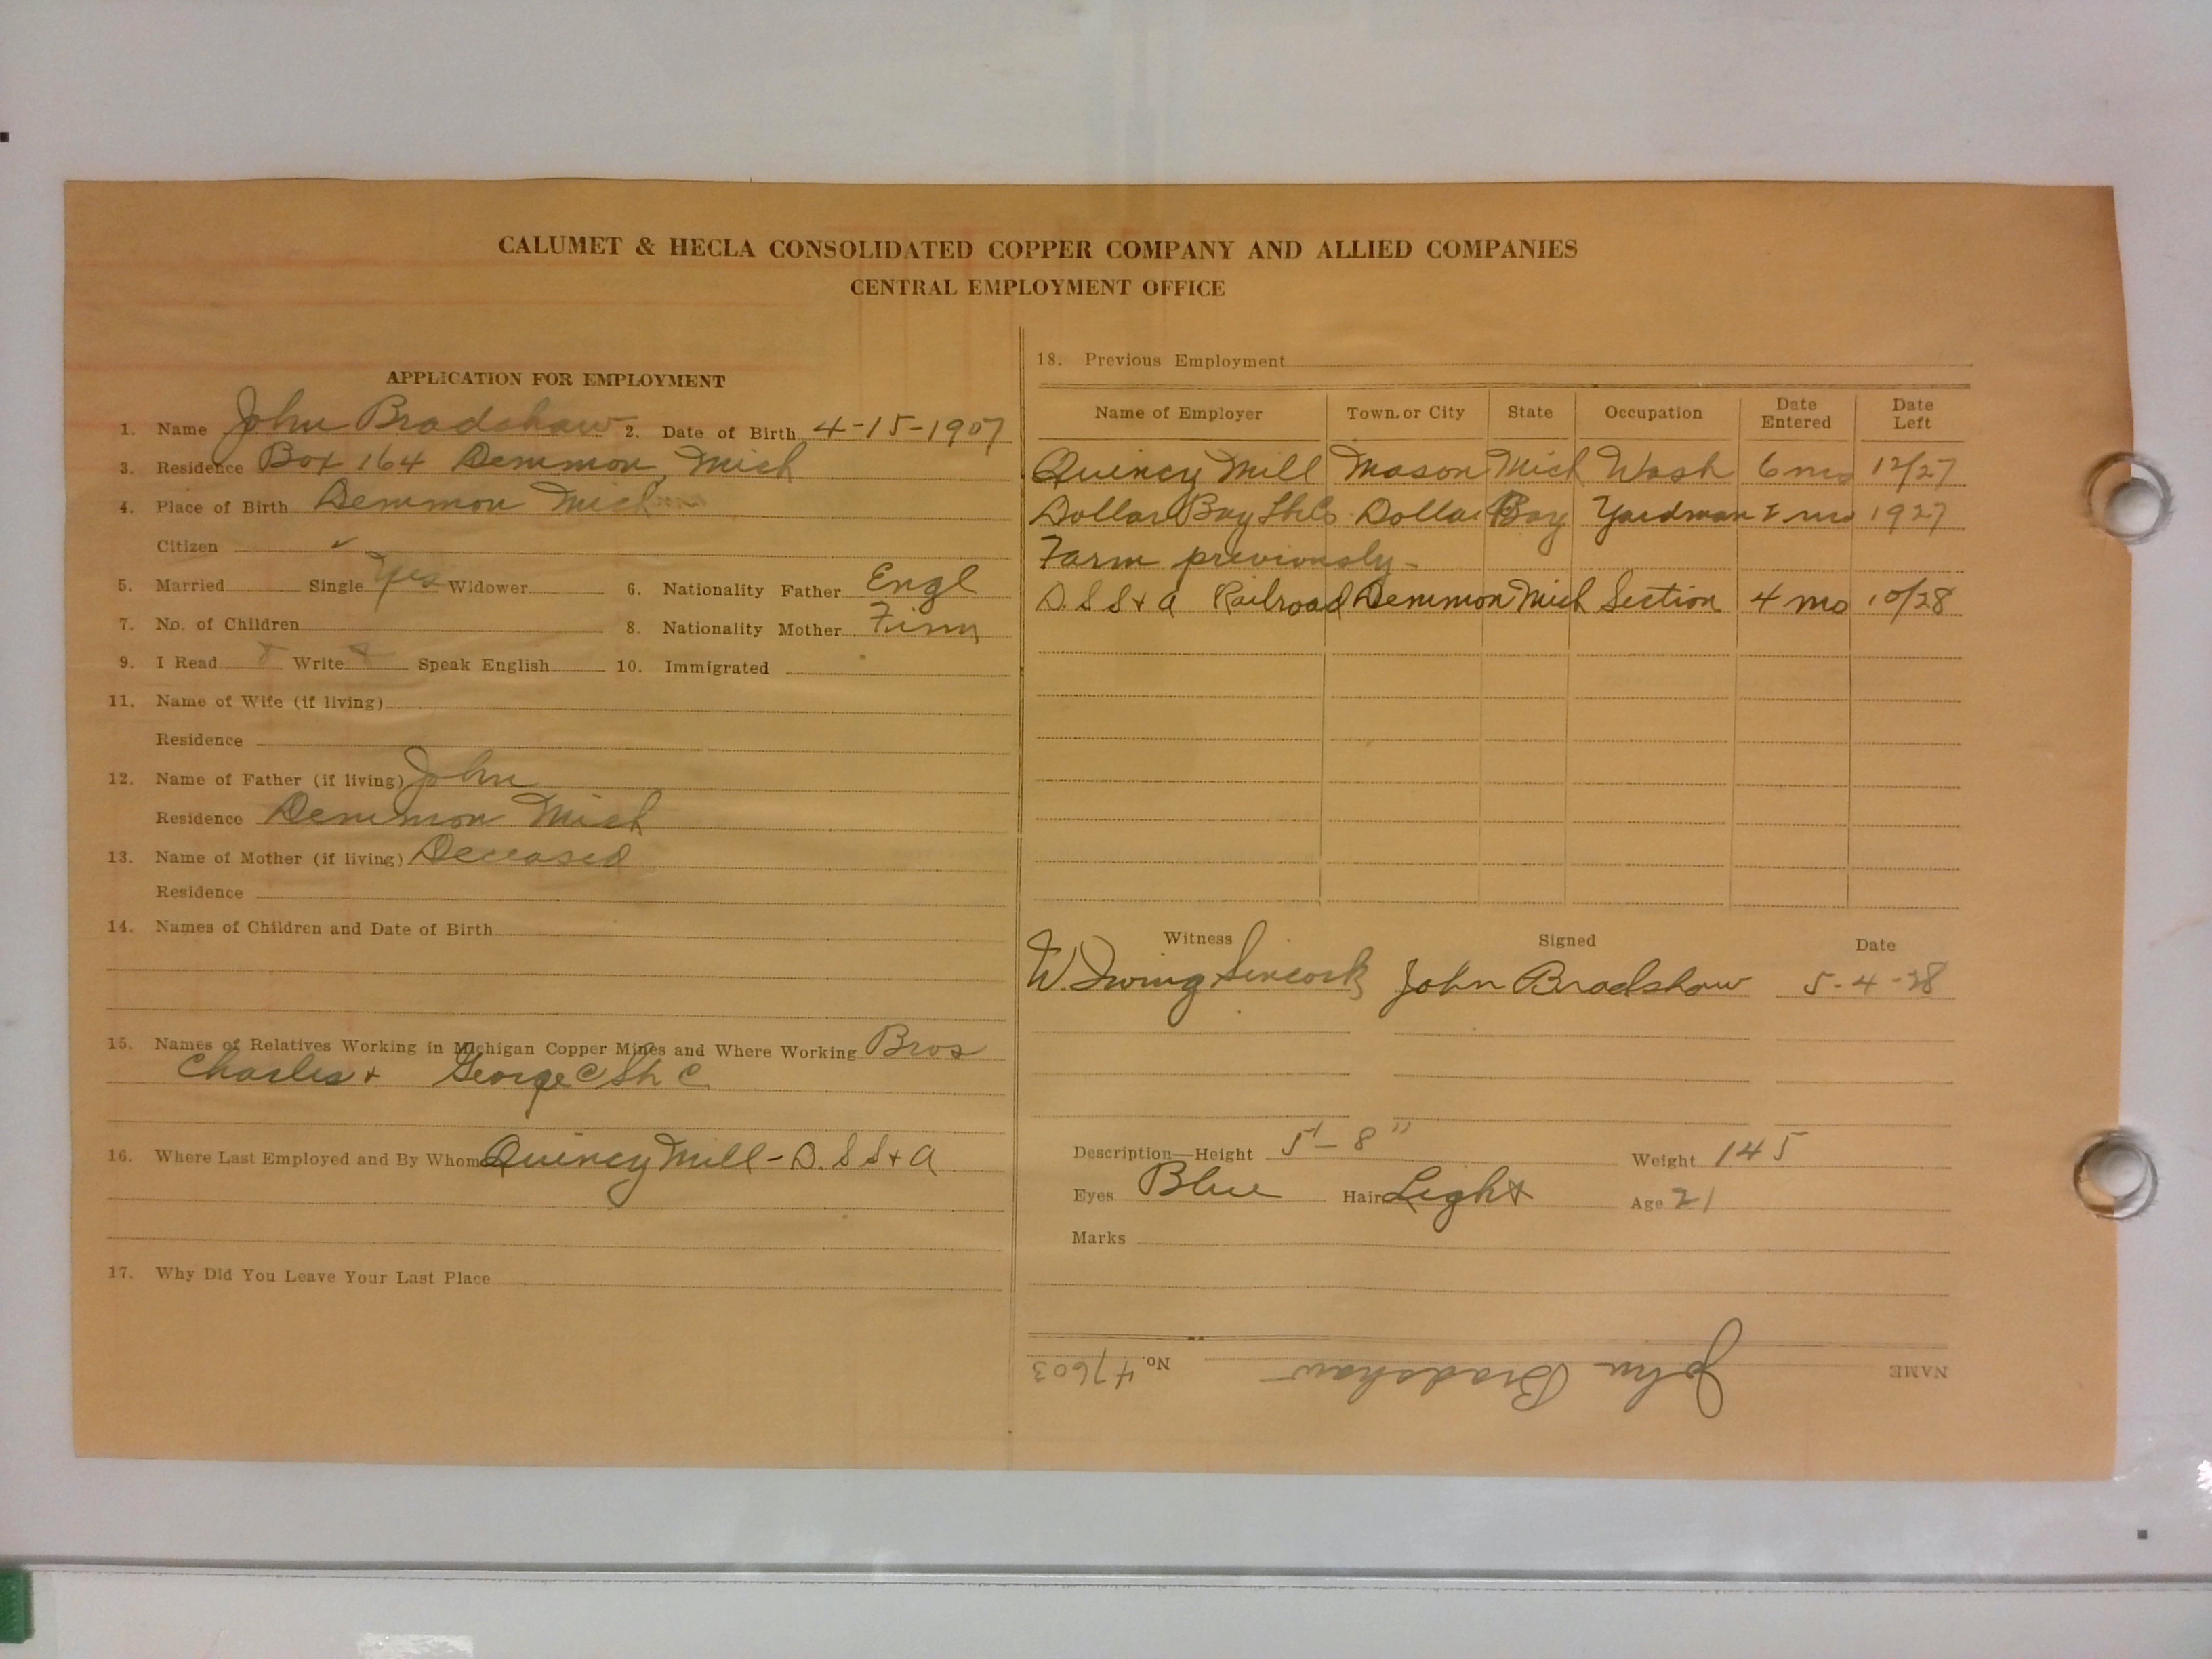 CALUMET & HECLA CONSOLIDATED COPPER COMPANY AND ALLIED COMPANIES
CENTRAL EMPLOYMENT OFFICE
APPLICATION FOR EMPLOYMENT
1. Name John Bradshaw 2. Date of Birth 4-15-1907
3. Residence Box 164 Demmon, Mich
4. Place of Birth Demmon Mich
Citizen ✓
5. Married Single Yes Widower 6. Nationality Father Engl
7. No. of Children 8. Nationality Mother Finn
9. I Read Write Speak English 10. Immigrated
11. Name of Wife (if living)
Residence
12. Name of Father (if living) John
Residence Demmon Mich
13. Name of Mother (if living) Deceased
Residence
14. Names of Children and Date of Birth
15. Names of Relatives Working in Michigan Copper Mines and Where Working Bros
Charles + George C
16. Where Last Employed and By Whom Quincy Mill - D. S S + A
17. Why Did You Leave Your Last Place
18. Previous Employment
Name of Employer Town or City State Occupation Date Entered Date Left
Quincy Mill Mason Mich Wash 6 mo 12/27
Dollar Bay Dollar Bay Yardman mo 1927
Farm previously -
D. S S + A Railroad Demmon Mich Section 4 mo 10/28
Witness Signed Date
W. Irving Sincock John Bradshaw 5-4-28
Description—Height 5'-8" Weight 145
Eyes Blue Hair Light Age 21
Marks
NAME John Bradshaw No. 47603